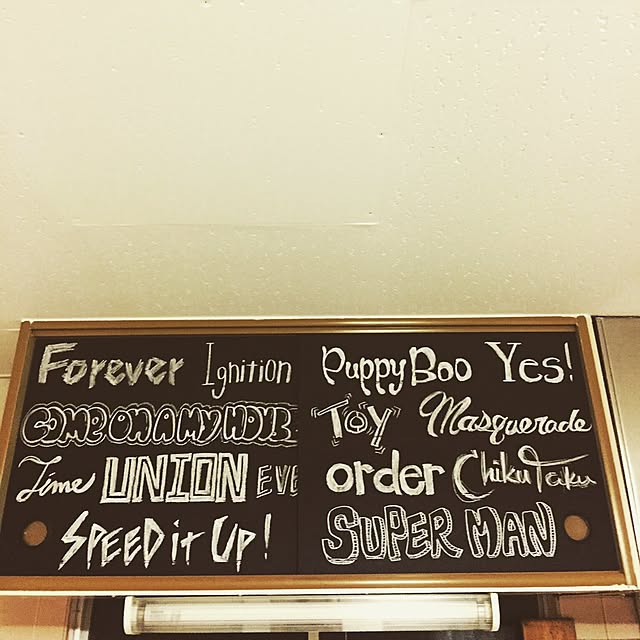 Forever Ignition
COME ON A MY HOUSE
Time UNION EVE
SPEED it UP!
Puppy Boo Yes!
Toy Masquerade
order Chiku Taku
SUPER MAN